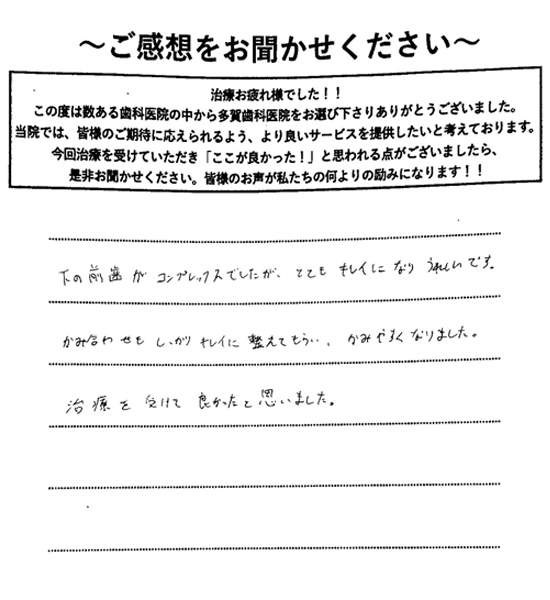 ～ご感想をお聞かせください～
治療お疲れ様でした！！
この度は数ある歯科医院の中から多賀歯科医院をお選び下さりありがとうございました。
当院では、皆様のご期待に応えられるよう、より良いサービスを提供したいと考えております。
今回治療を受けていただき「ここが良かった！」と思われる点がございましたら、
是非お聞かせください。皆様のお声が私たちの何よりの励みになります！！
下の前歯がコンプレックスでしたが、とてもキレイになりうれしいです。
かみ合わせもしっかりキレイに整えてもらい、かみやすくなりました。
治療を受けて良かったと思いました。